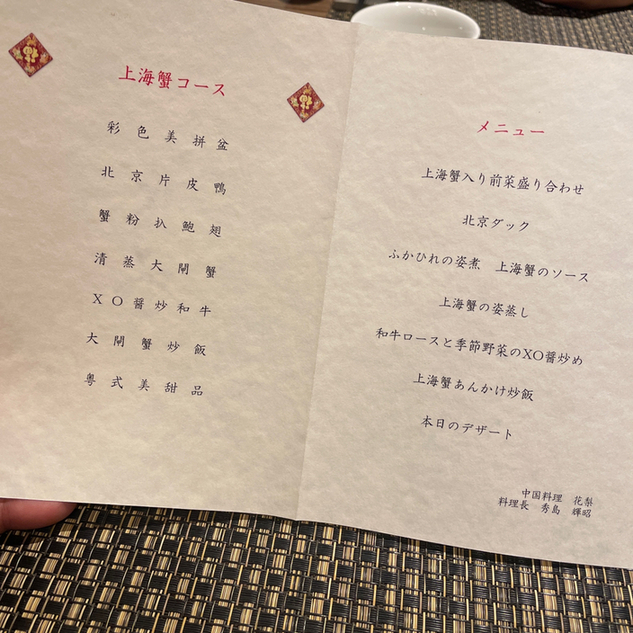 上海蟹コース
彩色美拼盆
北京片皮鴨
蟹粉扒鮑翅
清蒸大閘蟹
XO醤炒和牛
大閘蟹炒飯
粤式美甜品
メニュー
上海蟹入り前菜盛り合わせ
北京ダック
ふかひれの姿煮　上海蟹のソース
上海蟹の姿蒸し
和牛ロースと季節野菜のXO醤炒め
上海蟹あんかけ炒飯
本日のデザート
中国料理　花梨
料理長　秀島　輝昭